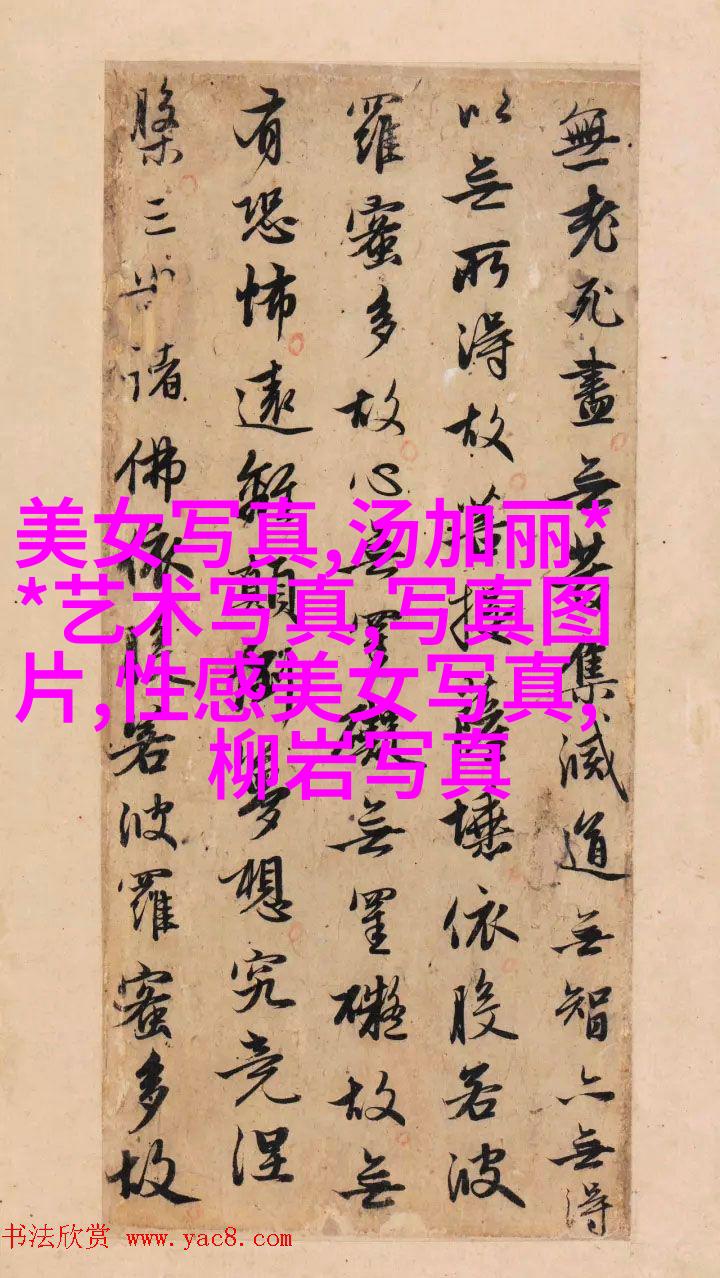 無老死盡无苦集滅道无智亦无得
以无所得故菩提薩埵依般若波
羅蜜多故心无罣礙无罣礙故无
有恐怖遠離顛倒夢想究竟涅
槃三世諸佛依般若波羅蜜多故
美女写真,汤加丽*
*艺术写真,写真图
片,性感美女写真,
柳岩写真
书法欣赏 www.yac8.com